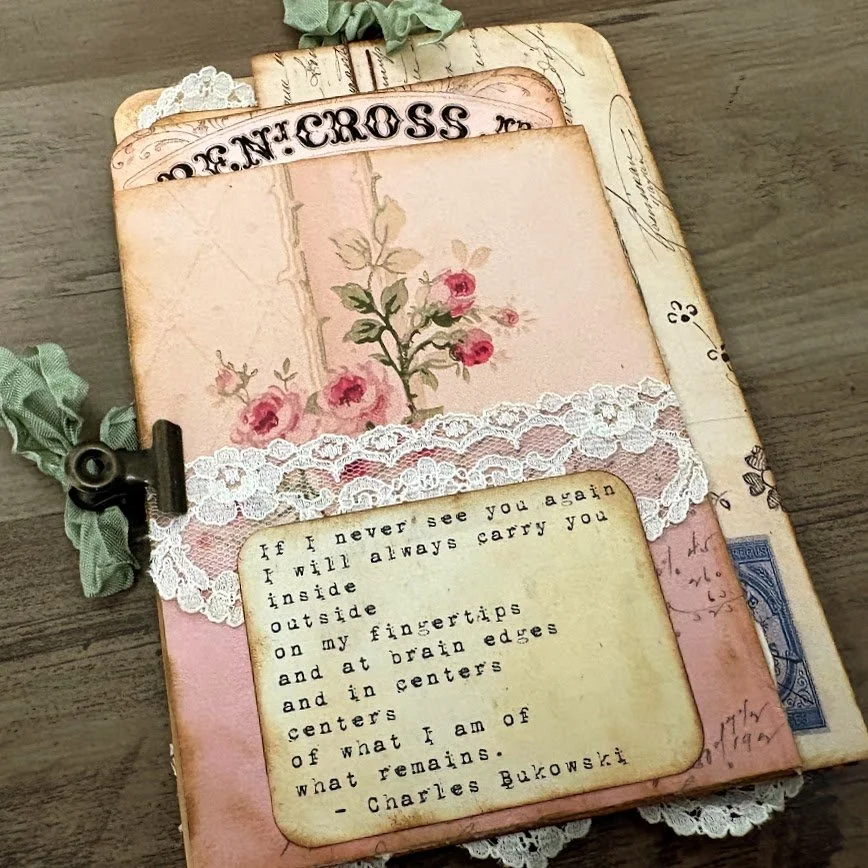 BENJ. CROSS
If I never see you again
I will always carry you
inside
outside
on my fingertips
and at brain edges
and in centers
centers
of what I am of
what remains.
- Charles Bukowski